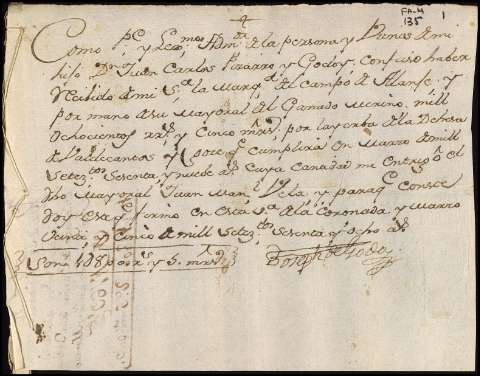 FA-4
135
1
Como Pe. y Lexmo. Admor. de la persona y Vienes de mi
hijo Dn. Juan Carlos Pizarro y Godoy, confieso haber
recibido de mi Sa. la Marqa. del Campo de Alanje, y
por mano de su Mayoral del Ganado Merino, mill
Ochocientos rrs. y Cinco mrs. por la yerba de la Dehesa
de Valdecantos y Cumplira en Marzo de mill
Seteztos. Sesenta, y nueve as. Cuya Cantidad me Entrego el
dho Mayoral Juan Manl. Vela y para qe. Conste
doy Este y firmo en Esta Va. de la Coronada y Marzo
Veinte y Cinco de mill Setezs. Sesenta y Ocho as.
Son 1800 rs. y 5 mrs.